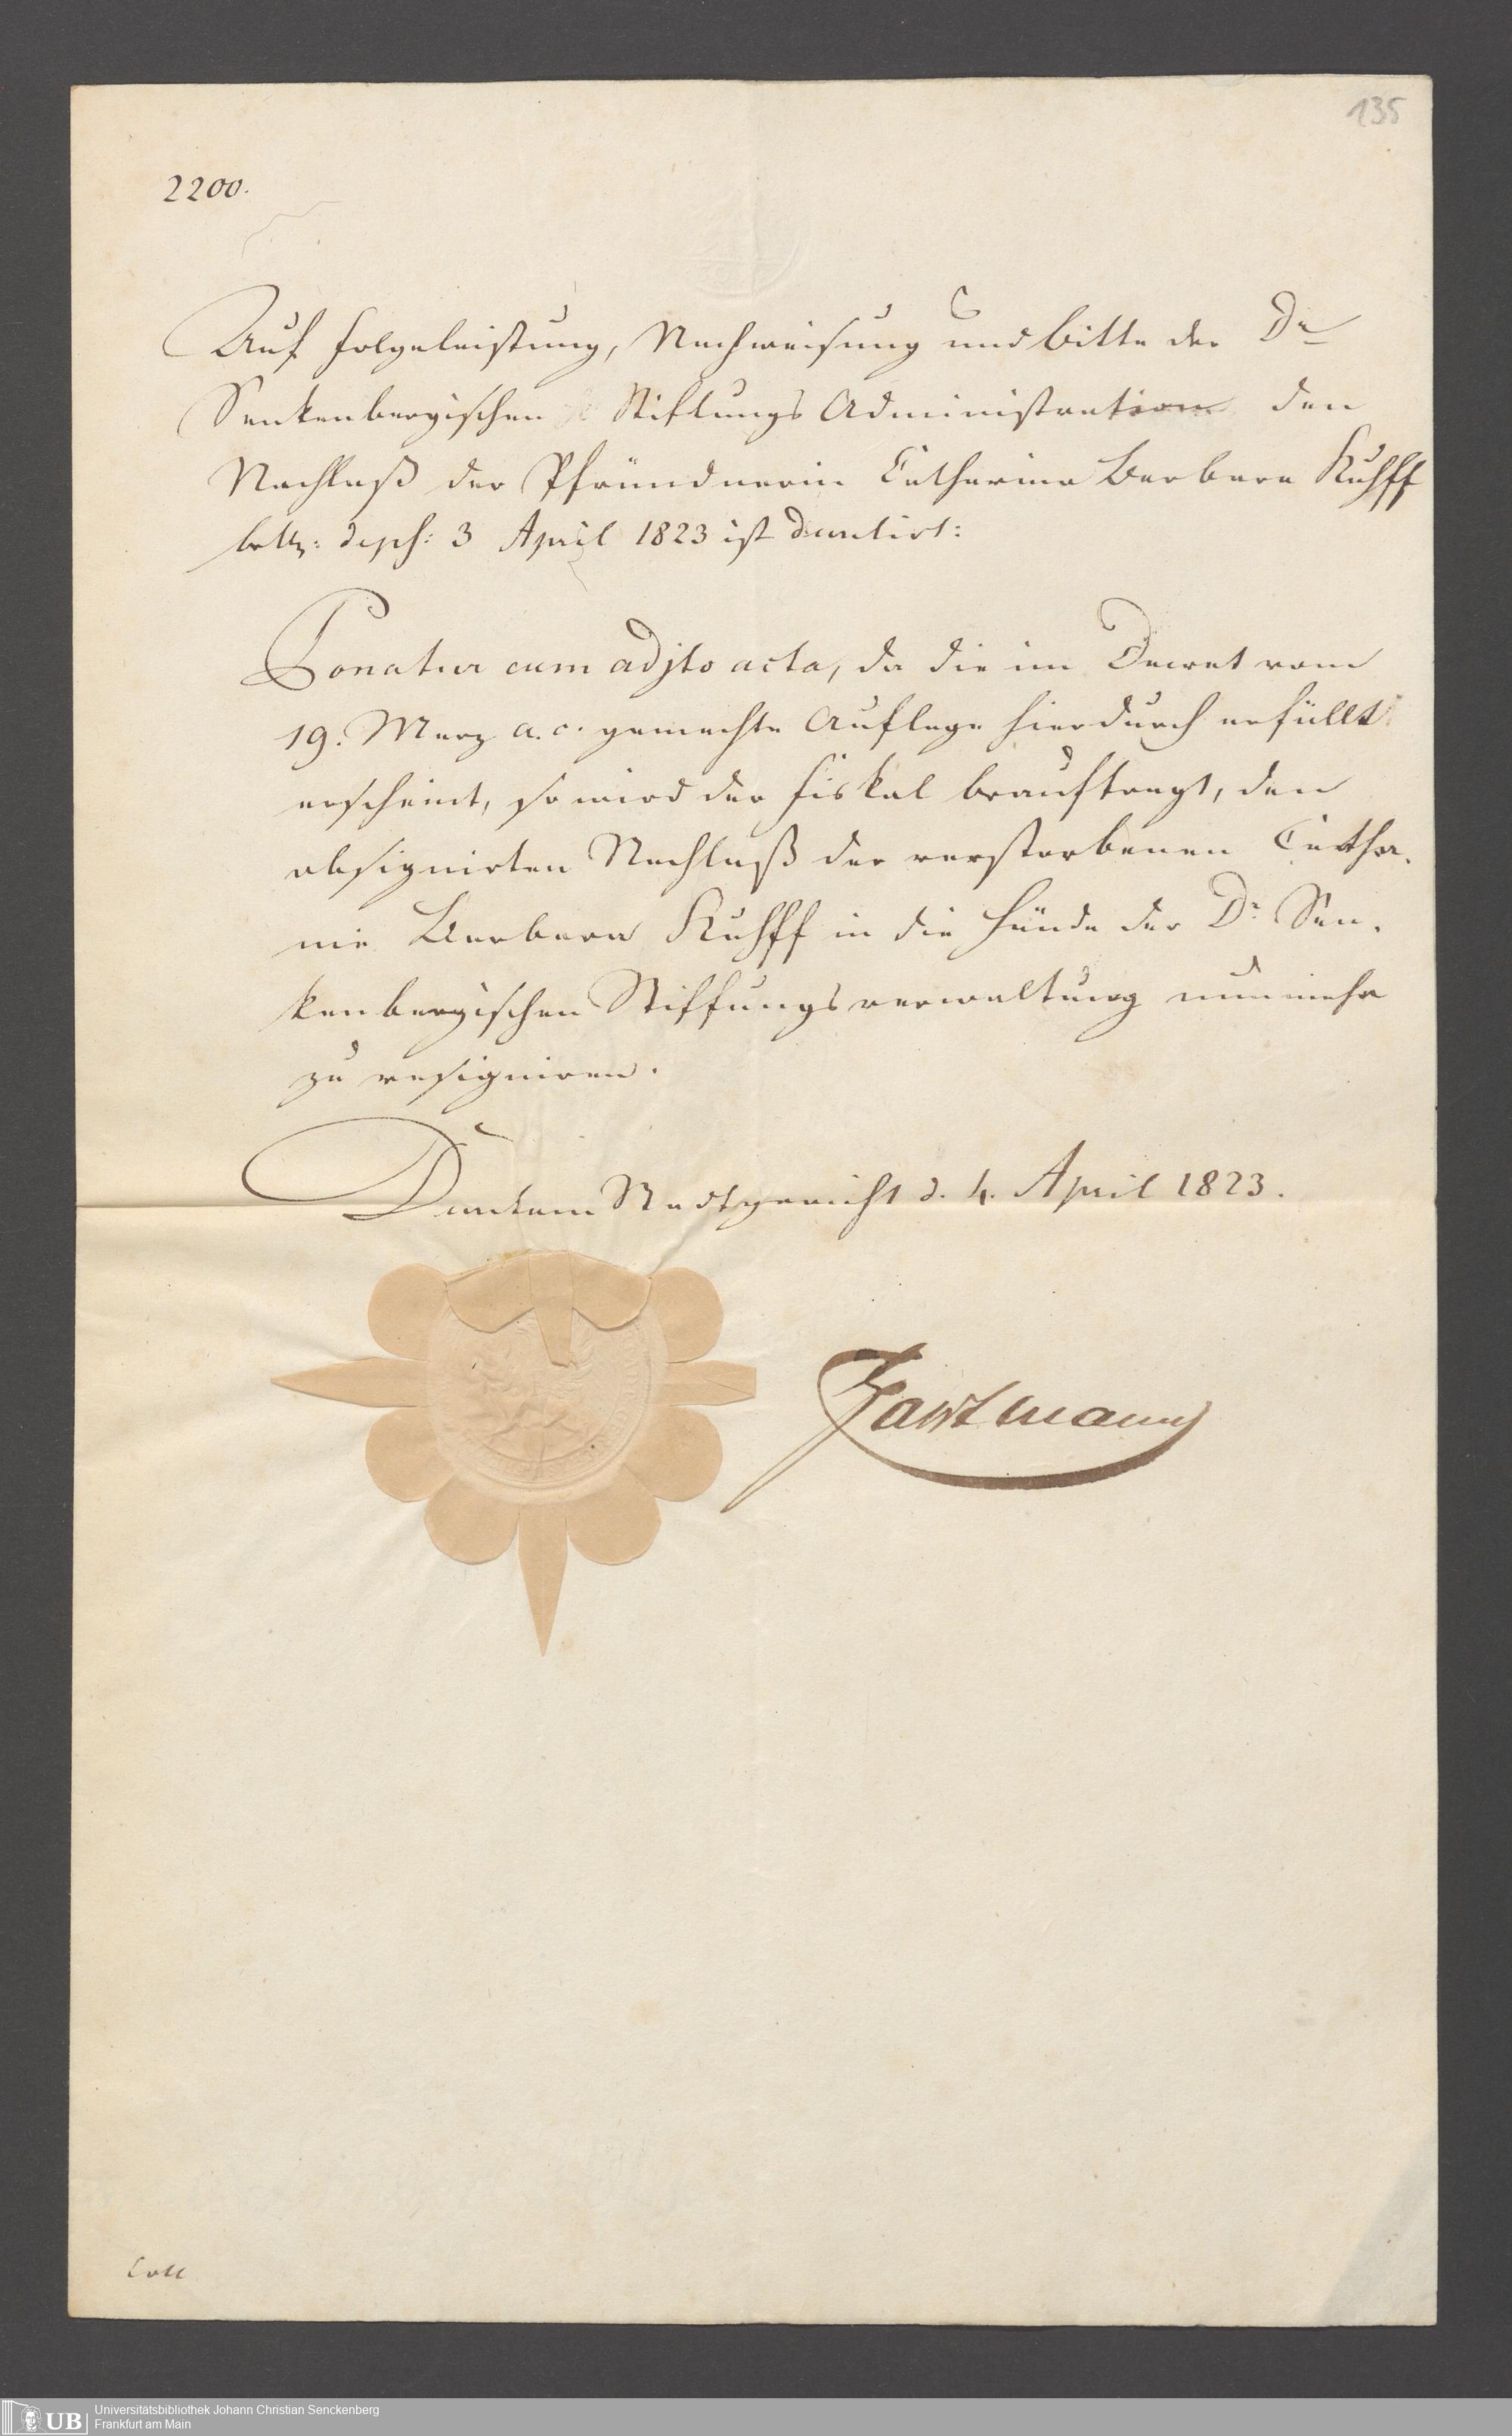 135
2200.
Auf Folgeleistung, Nachweisung und Bitte der Dr
Senkenbergischen Stiftungs Administration den
Nachlaß der Pfründnerin Catharina Barbara Kuhff
betr: 3 April 1823 ist decretirt:
Ponatur cum adjto acta, da die im Decret vom
19. Merz a. c. gemachte Auflage hierdurch erfüllt
erscheint, so wird der Fiskal beauftragt, den
obsignirten Nachlaß der verstorbenen Catha-
rine Barbara Kuhff in die Hände der Dr Sen-
kenbergischen Stiftungsverwaltung nunmehr
zu resigniren.
Decretum Stadtgericht d. 4. April 1823.
Hartmann
Coll
UB
Universitätsbibliothek Johann Christian Senckenberg
Frankfurt am Main